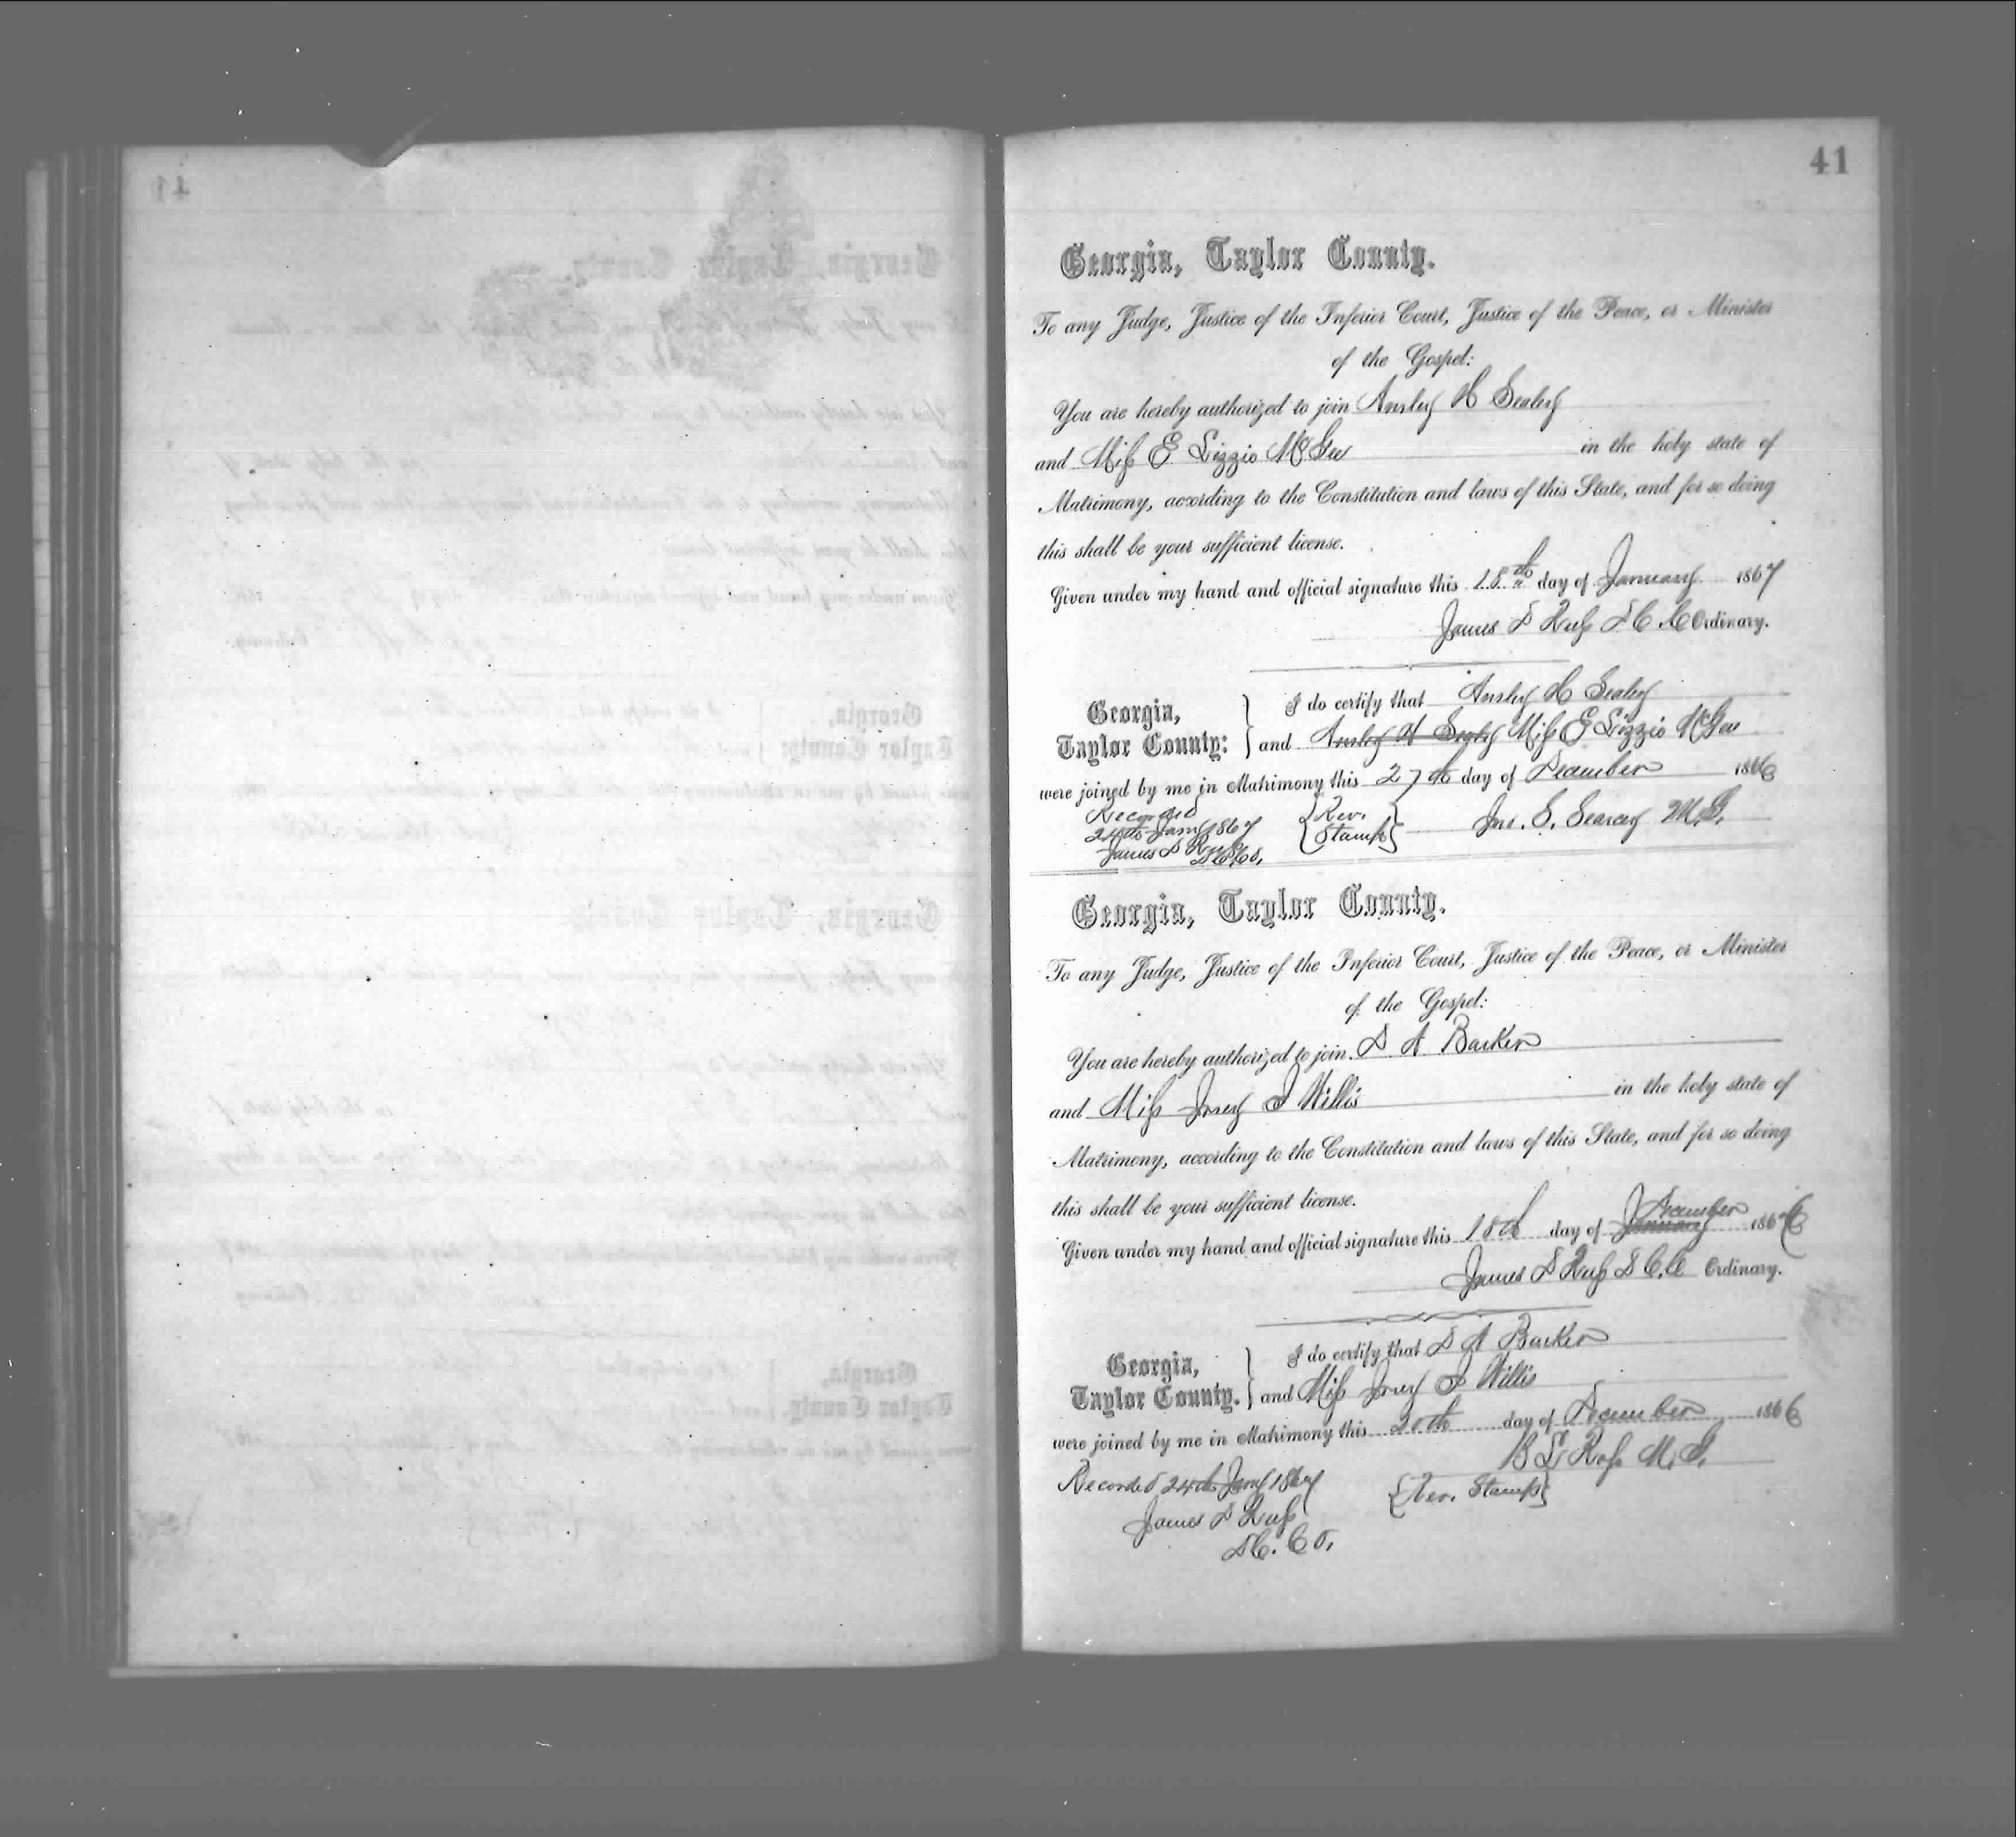 41
Georgia, Taylor County.
To any Judge, Justice of the Inferior Court, Justice of the Peace, or Minister
of the Gospel:
You are hereby authorized to join Ansley H Sealey
and Miss E Lizzie McGee in the holy state of
Matrimony, according to the Constitution and laws of this State, and for so doing
this shall be your sufficient license.
Given under my hand and official signature this 18th day of January 1867
James D Russ D C C Ordinary.
Georgia,
Taylor County:
I do certify that Ansley H Sealey
and Ansley H Sealey Miss E Lizzie McGee
were joined by me in Matrimony this 27th day of December 1866
Recorded
24th Jany 1867
James D Russ
D C C O,
Rev.
Stamps
Jno. S. Searcy M.G.
Georgia, Taylor County.
To any Judge, Justice of the Inferior Court, Justice of the Peace, or Minister
of the Gospel:
You are hereby authorized to join D A Barker
and Miss J Willis in the holy state of
Matrimony, according to the Constitution and laws of this State, and for so doing
this shall be your sufficient license.
Given under my hand and official signature this 18th day of January December 1866
James D Russ D C. C Ordinary.
Georgia,
Taylor County.
I do certify that D A Barker
and Miss J Willis
were joined by me in Matrimony this 20th day of December 1866
B L Ross M. G.
Recorded 24th Jany 1867
James D Russ
D C. C O,
Rev. Stamps